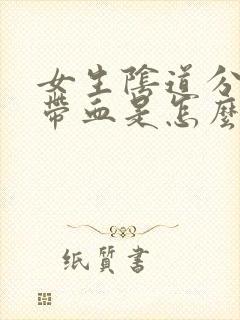 女生陰道分
帶血是怎麼
纸質書